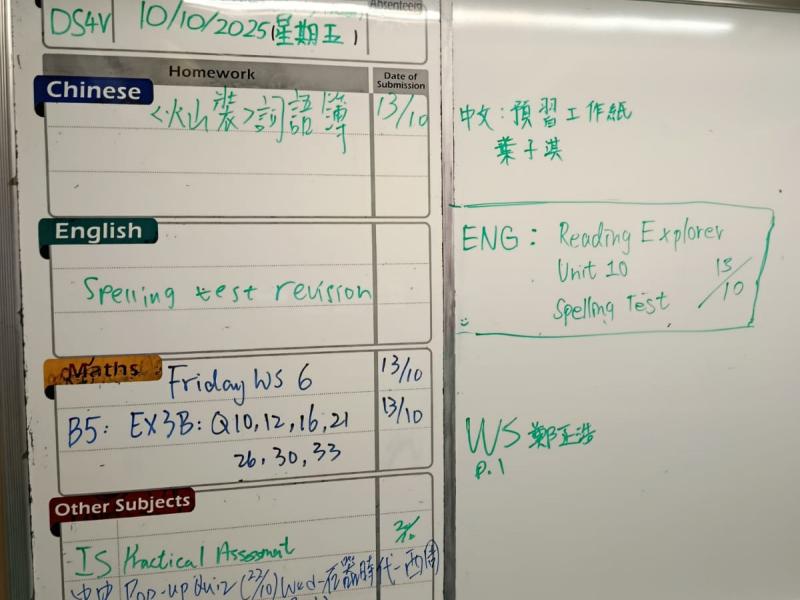 DS4V 10/10/2025(星期五)
Absentees
Homework
Date of Submission
Chinese
<火山裝>詞語簿 13/10
English
Spelling test revision
Maths
Friday WS 6 13/10
B5: EX3B: Q10, 12, 16, 21 13/10
26, 30, 33
Other Subjects
IS Practical Assessment
Pop-up Quiz (22/10) Wed-石器時代-西周
中文:預習工作紙
葉子淇
ENG: Reading Explorer
Unit 10 13/10
Spelling Test
WS 鄭正浩
p.1